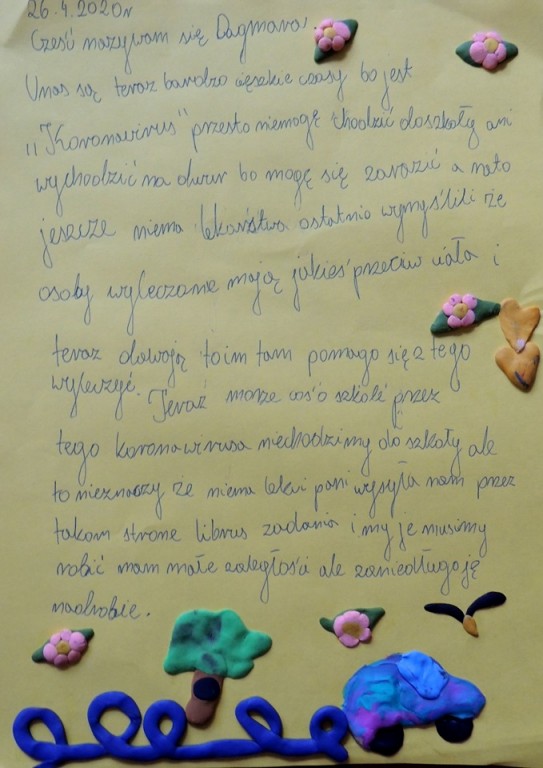 26.4.2020r
Cześć nazywam się Dagmara!
Unas są teraz bardzo cięszkie czasy bo jest
,,Koronawirus" przesto niemogę chodzić doszkoły ani
wychodzić na dwur bo mogę się zarazić a nato
jeszcze niema lekarstwa ostatnio wymyślili że
osoby wyleczone mają jakieś przeciw ciała i
teraz dawają to im tam pomago się z tego
wyleczyć. Teraz morze coś o szkole przez
tego koronawirusa niechodzimy do szkoły ale
to nieznaczy że niema lekci pani wysyła nam przez
takom strone librus zadania i my je musimy
robić mam małe zaległości ale zaniedługo ję
nadrobie.